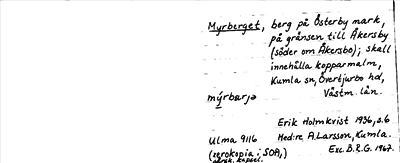 Myrberget, berg på Österby mark,
på gränsen till Åkersby
(söder om Åkersbo); skall
innehålla kopparmalm,
Kumla sn, Övertjurbo hd,
mýrbærjə Västm. län.
Erik Holmkvist 1936, s.6
Ulma 9116 Med:re A. Larsson, Kumla.
(xerokopia i SOA, Exc. B.R.G. 1967.